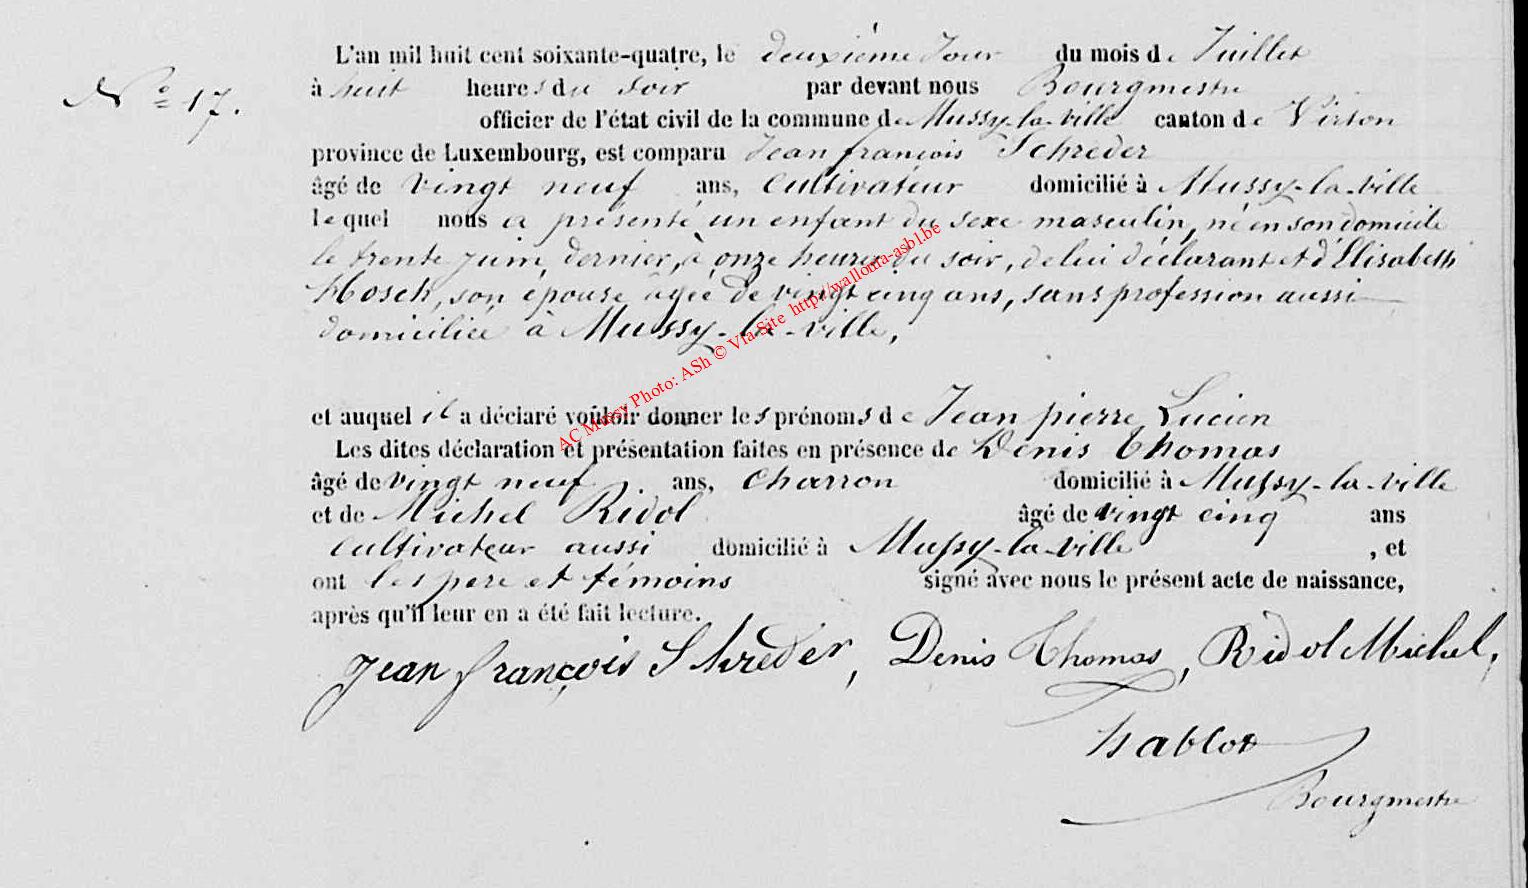 L'an mil huit cent soixante-quatre, le deuxième Jour du mois de Juillet
N° 17. à huit heures du soir par devant nous Bourgmestre
officier de l'état civil de la commune de Mussy-la-ville canton de Virton
province de Luxembourg, est comparu Jean françois Schreder
âgé de vingt neuf ans, Cultivateur domicilié à Mussy-la-ville
lequel nous a présenté un enfant du sexe masculin, né en son domicile
le trente juin, dernier, à onze heures du soir, de lui déclarant et d'Elisabeth
Hosch, son épouse âgée de vingt cinq ans, sans profession aussi
domiciliée à Mussy-la-ville,
AC Mussy Photo: ASh © Via Site http://wallonia-asbl.be
et auquel il a déclaré vouloir donner les prénoms de Jean pierre Lucien
Les dites déclaration et présentation faites en présence de Denis Thomas
âgé de vingt neuf ans, Charron domicilié à Mussy-la-ville
et de Michel Ridol âgé de vingt cinq ans
cultivateur aussi domicilié à Mussy-la-ville , et
ont les père et témoins signé avec nous le présent acte de naissance,
après qu'il leur en a été fait lecture.
Jean françois Schreder, Denis Thomas, Ridol Michel,
hablot
Bourgmestre